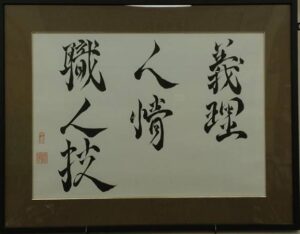 義理
人情
職人技